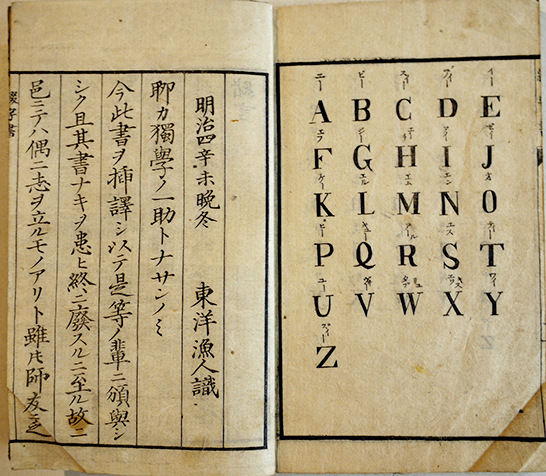 綴字書
邑ニテハ偶ニ志ヲ立ルモノアリト雖𪜈師友ニ乏
シク且其書ナキヲ患ヒ終ニ廢スルニ至ル故ニ
今此書ヲ挿譯シ以テ是等ノ輩ニ頒與シ
聊カ獨學ノ一助トナサンノミ
明治四辛未晩冬 東洋漁人識
エー ビー スィー ディー イー
A B C D E
エフ ジー アイ
F G H I J
ケー エル エム エン オ
K L M N O
ピー キュー アール エス テー
P Q R S T
ユー
U V W X Y
Z